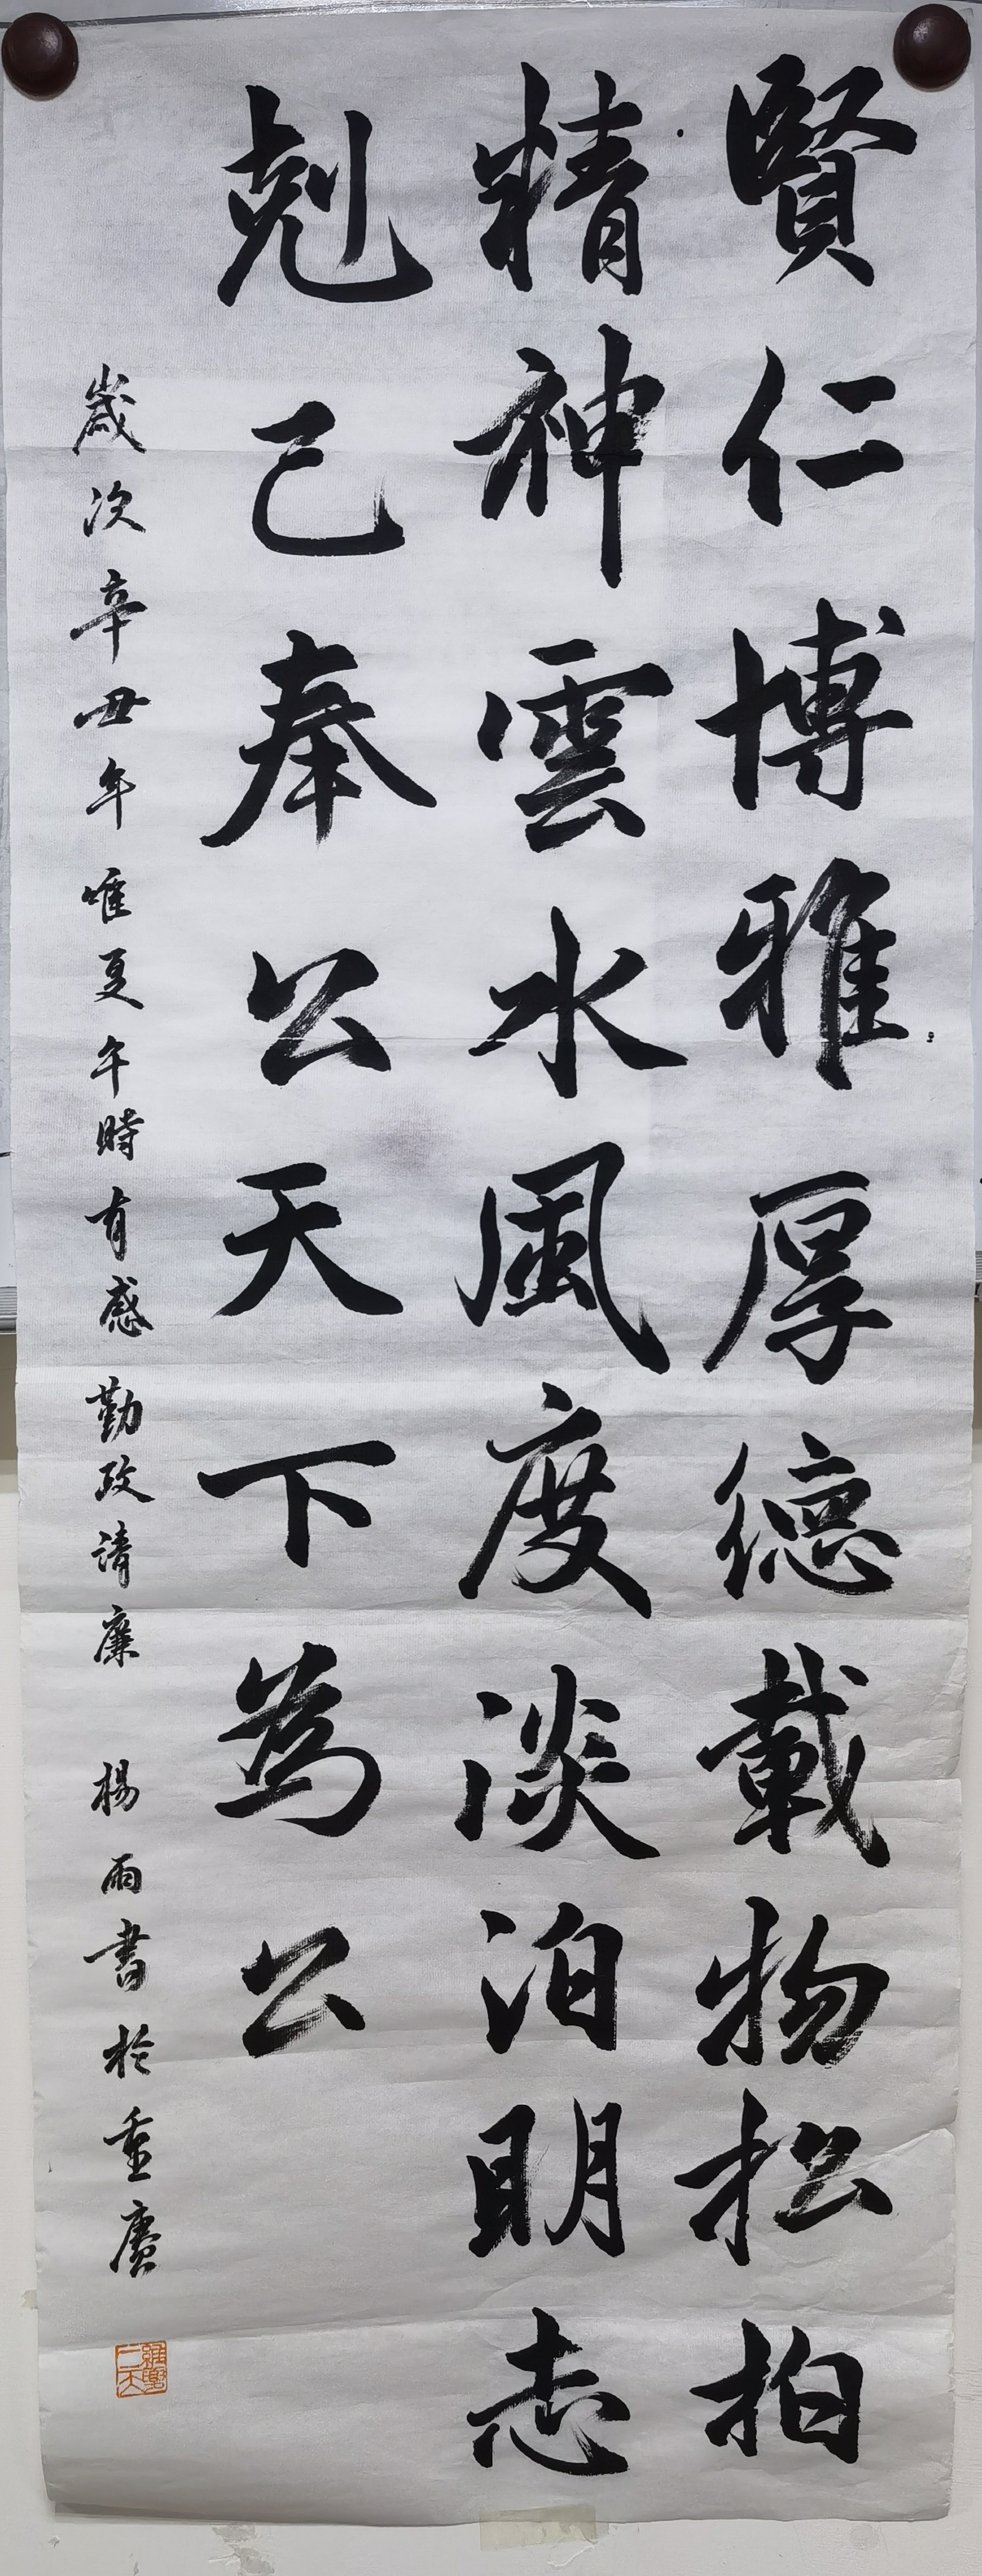 賢仁博雅厚德載物松柏
精神雲水風度淡泊明志
剋己奉公天下為公
歲次辛丑年唯夏午時有感 勤政请廉 楊雨書於重慶